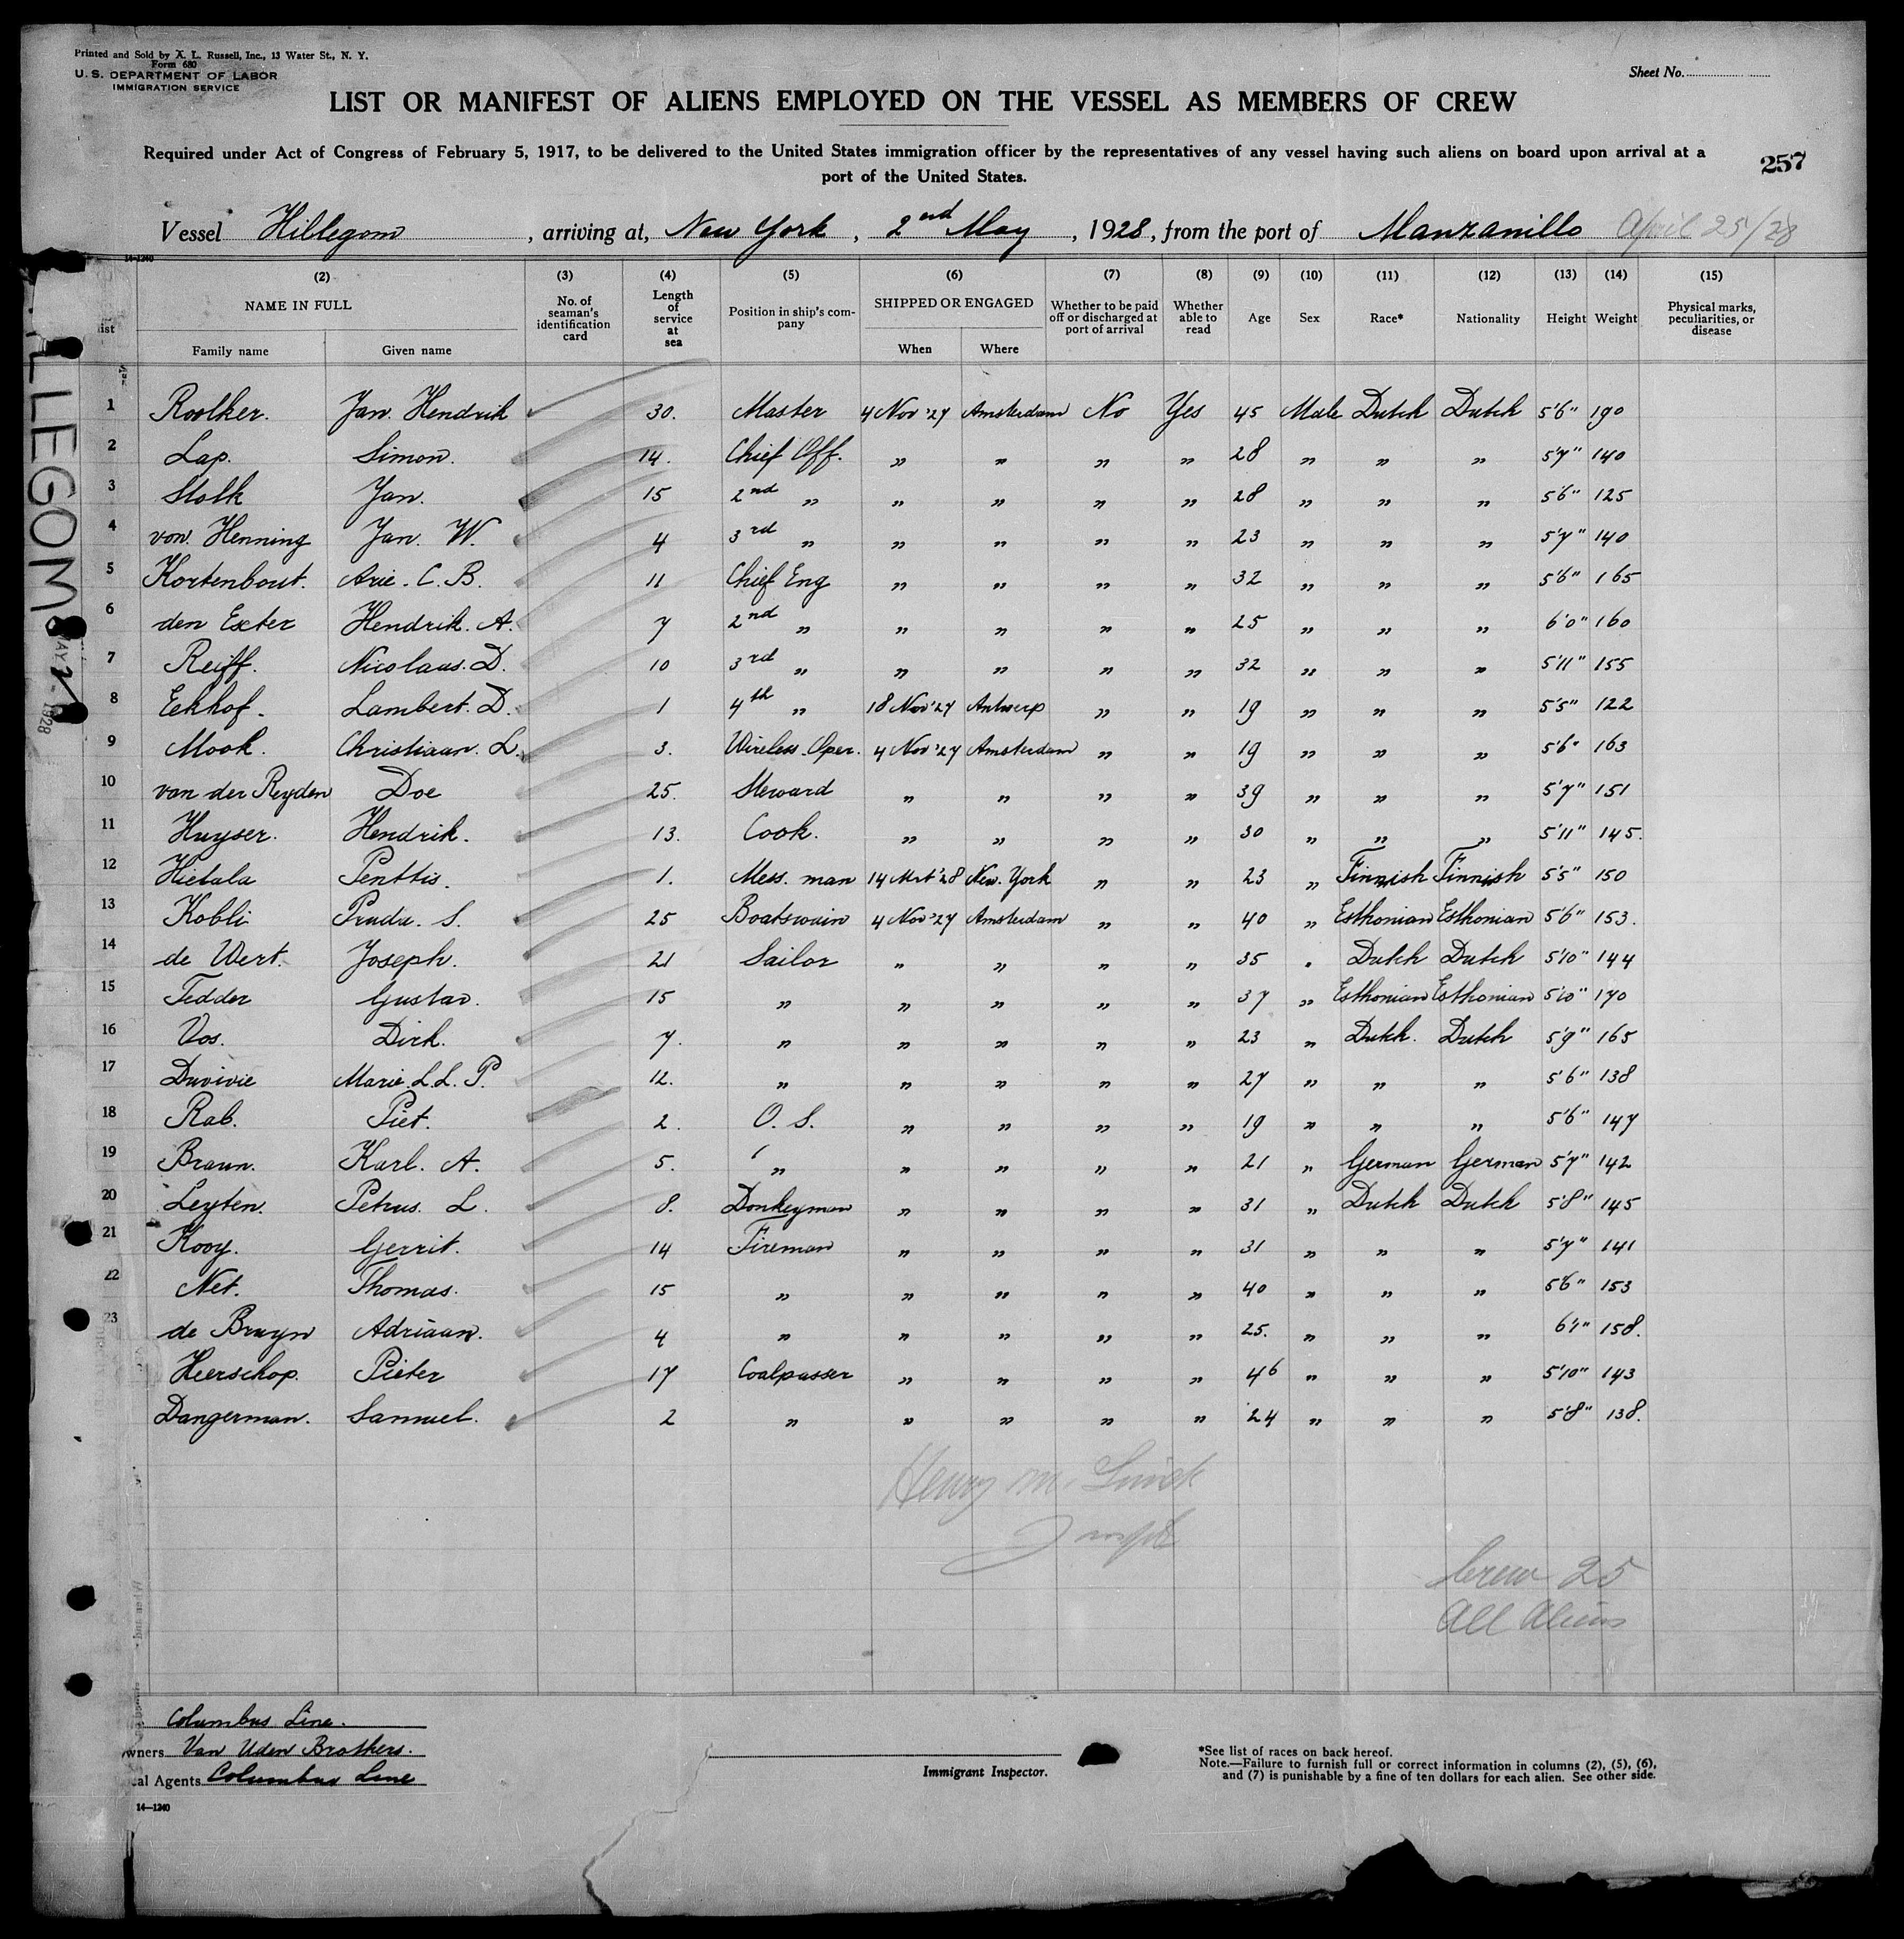 Printed and Sold by A. L. Russell, Inc., 13 Water St., N. Y.
Form 680
U. S. DEPARTMENT OF LABOR
IMMIGRATION SERVICE
Sheet No.
LIST OR MANIFEST OF ALIENS EMPLOYED ON THE VESSEL AS MEMBERS OF CREW
Required under Act of Congress of February 5, 1917, to be delivered to the United States immigration officer by the representatives of any vessel having such aliens on board upon arrival at a
port of the United States.
257
Vessel Hillegom, arriving at, New York, 2nd May, 1928, from the port of Manzanillo April 25/28
14-1240
(2) (3) (4) (5) (6) (7) (8) (9) (10) (11) (12) (13) (14) (15)
NAME IN FULL Family name Given name
No. of seaman's identification card
Length of service at sea
Position in ship's company
SHIPPED OR ENGAGED When Where
Whether to be paid off or discharged at port of arrival
Whether able to read
Age Sex Race* Nationality Height Weight
Physical marks, peculiarities, or disease
1 Roolker. Jan. Hendrik 30. Master 4 Nov '27 Amsterdam No Yes 45 Male Dutch Dutch 5'6" 190
2 Lap. Simon. 14. Chief Off. " " " " 28 " " " 5'7" 140
3 Stolk Jan. 15 2nd " " " " " 28 " " " 5'6" 125
4 von Henning Jan. W. 4 3rd " " " " " 23 " " " 5'7" 140
5 Kortenbout. Arie. C. B. 11 Chief Eng " " " " 32 " " " 5'6" 165
6 den Exter Hendrik. A. 7 2nd " " " " " 25 " " " 6'0" 160
7 Reiff. Nicolaus. D. 10 3rd " " " " " 32 " " " 5'11" 155
8 Eekhof. Lambert. D. 1 4th " 18 Nov '27 Antwerp " " 19 " " " 5'5" 122
9 Mook. Christiaan. L. 3. Wireless Oper. 4 Nov '27 Amsterdam " " 19 " " " 5'6" 163
10 van der Reyden Doe 25. Steward " " " " 39 " " " 5'7" 151
11 Huyser. Hendrik. 13. Cook. " " " " 30 " " " 5'11" 145.
12 Hietala Penttis. 1. Mess. man 14 Mrt '28 New. York " " 23 " Finnish Finnish 5'5" 150
13 Kobli Pruda. S. 25 Boatswain 4 Nov '27 Amsterdam " " 40 " Esthonian Esthonian 5'6" 153.
14 de Wert. Joseph. 21 Sailor " " " " 35 " Dutch Dutch 5'10" 144
15 Tedder Gustav. 15 " " " " " 37 " Esthonian Esthonian 5'10" 170
16 Vos. Dirk. 7. " " " " " 23 " Dutch. Dutch 5'9" 165
17 Duvivie Marie. L. L. P. 12. " " " " " 27 " " " 5'6" 138
18 Rab. Piet. 2. O. S. " " " " 19 " " " 5'6" 147
19 Braun. Karl. A. 5. " " " " " 21 " German German 5'7" 142
20 Leyten. Petrus. L. 8. Donkeyman " " " " 31 " Dutch Dutch 5'8" 145
21 Kooy. Gerrit. 14 Fireman " " " " 31 " " " 5'7" 141
22 Net. Thomas. 15 " " " " " 40 " " " 5'6" 153
23 de Bruyn Adriaan. 4 " " " " " 25. " " " 6'1" 158.
Heerschop. Pieter 17 Coalpasser " " " " 46 " " " 5'10" 143
Dangerman. Samuel. 2 " " " " " 24 " " " 5'8" 138.
Henry M.
Crew 25
All Aliens
LLEGOM
MAY 2 1928
Columbus Line.
wners Van Uden Brothers.
al Agents Columbus Line
14-1240
Immigrant Inspector.
*See list of races on back hereof.
Note.—Failure to furnish full or correct information in columns (2), (5), (6),
and (7) is punishable by a fine of ten dollars for each alien. See other side.